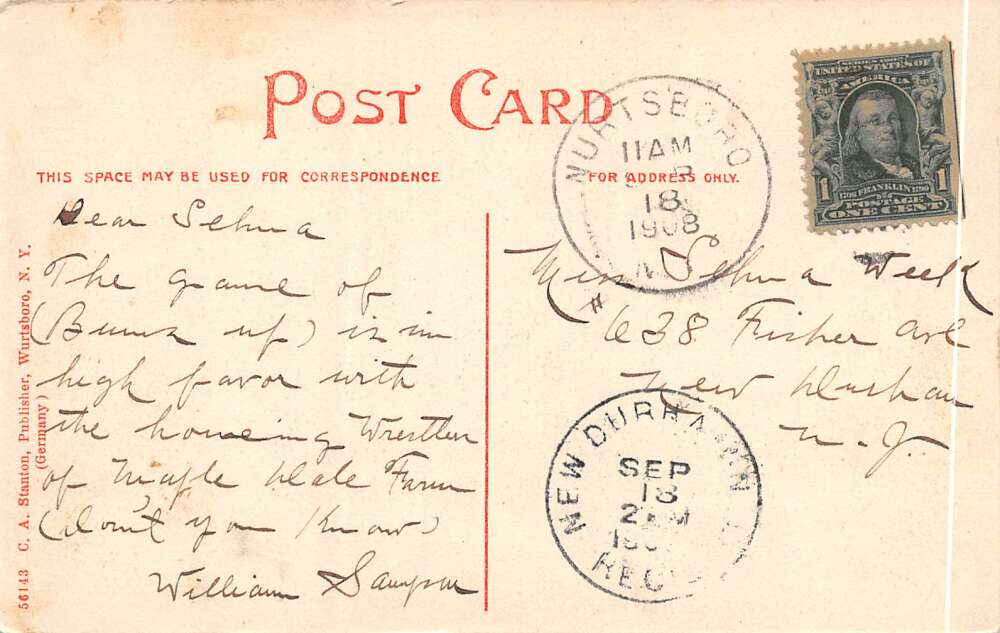 POST CARD
THIS SPACE MAY BE USED FOR CORRESPONDENCE
FOR ADDRESS ONLY.
Dear Selma
The game of
(Bunk up) is in
high favor with
the Wrestler
of Maple Dale Farm
(Don't you know)
William Sampson
Miss Selma Week
638 Fisher Ave
New Durham
N. J.
WURTSBORO
11 AM
18
1908
N.Y.
NEW DURHAM N
SEP
18
2 M
REC'D
SERIES 1902
UNITED STATES OF
AMERICA
1706 FRANKLIN 1790
1 POSTAGE 1
ONE CENT
56143 C. A. Stanton, Publisher, Wurtsboro, N. Y.
(Germany)